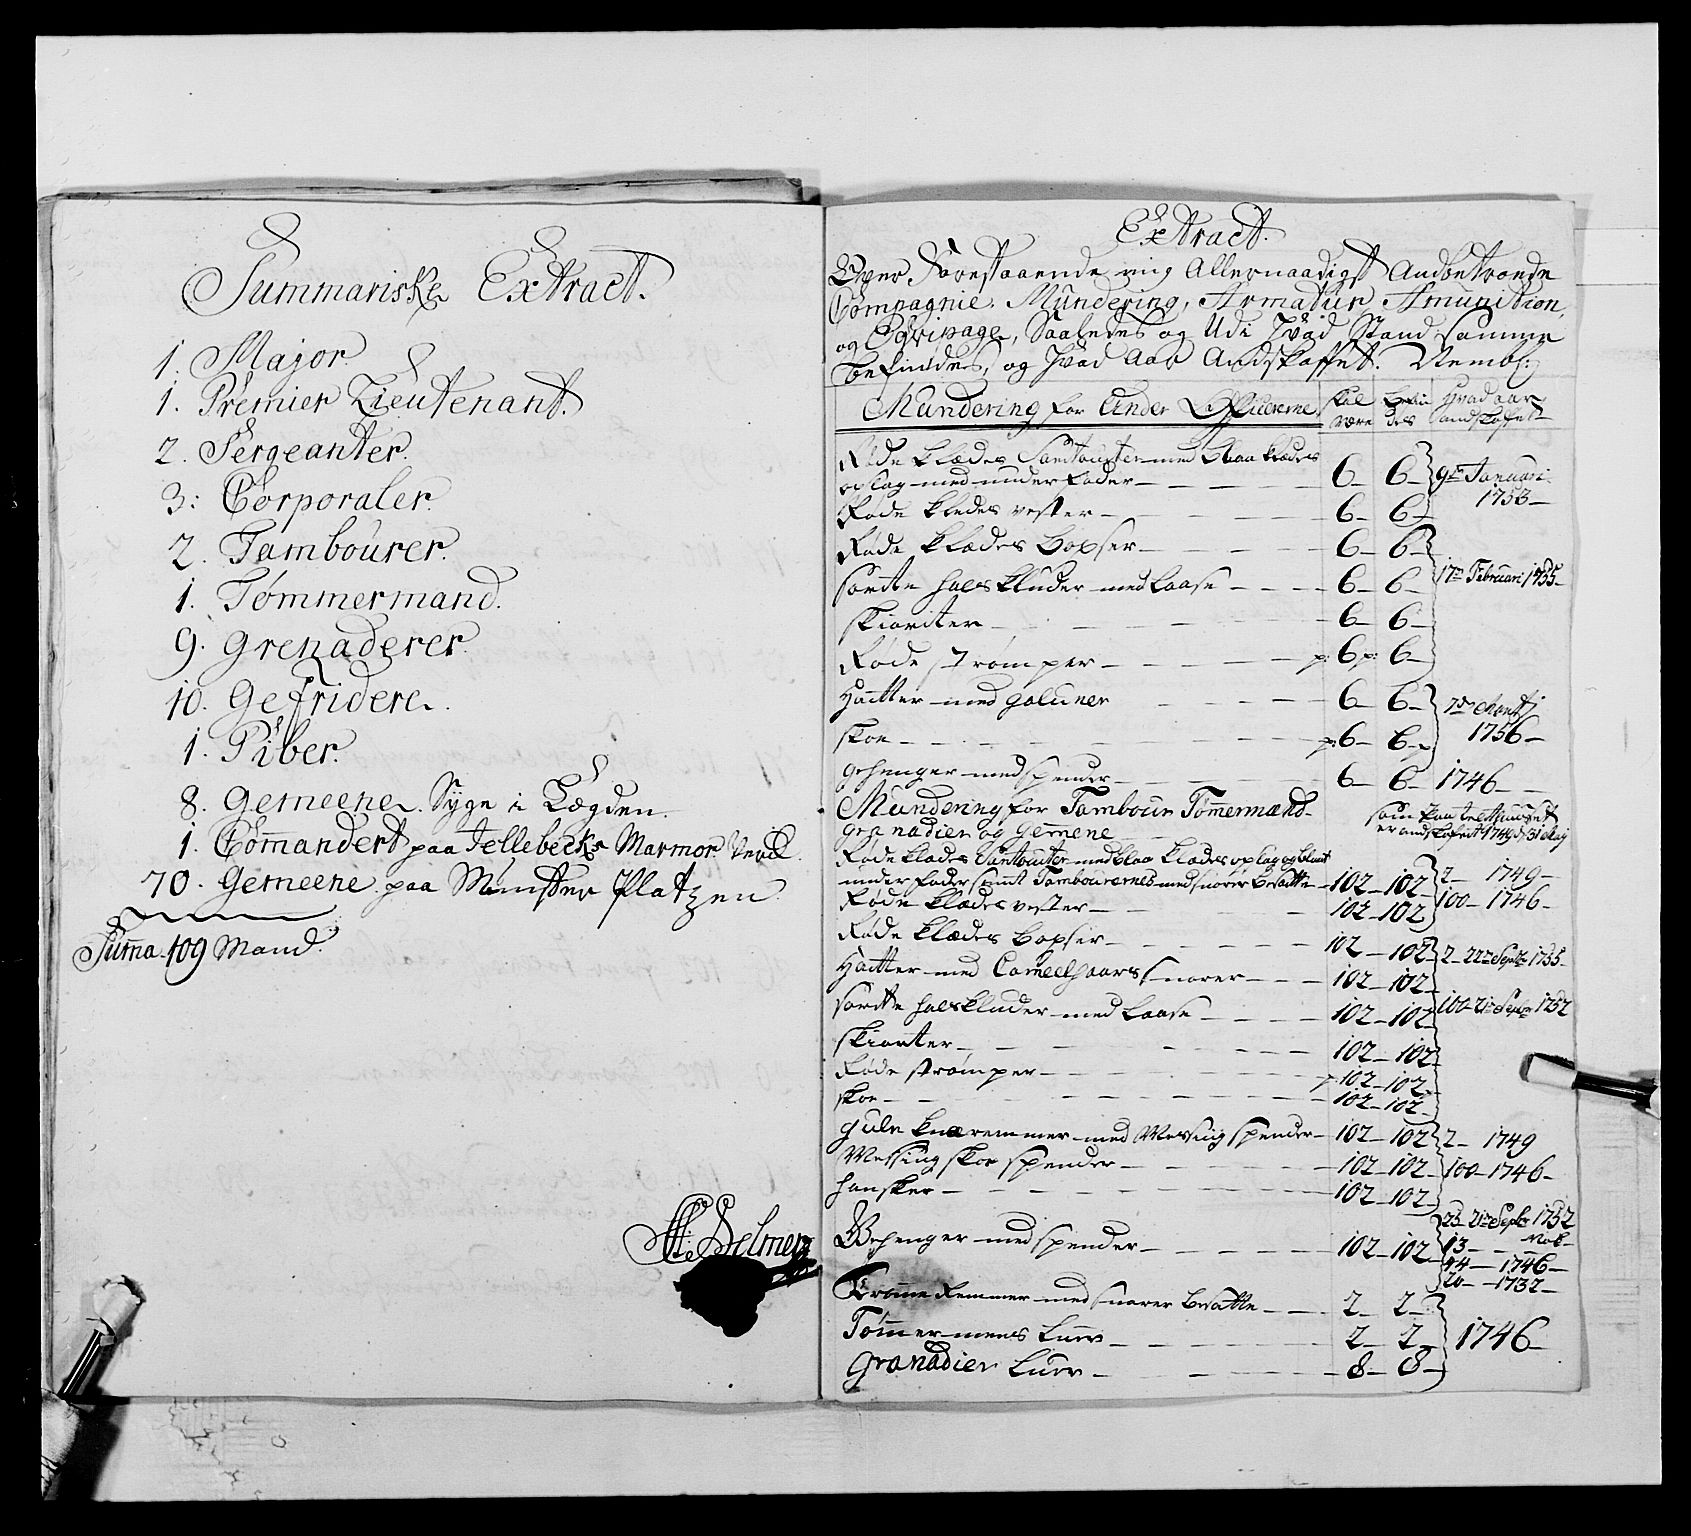 Summariske Extract.
1. Major.
1. Premier Lieutenant.
2. Sergeanter.
3: Corporaler.
2. Tambourer.
1. Tømmermand.
9. Grenaderer.
10. Gefridere.
1. Piber.
8. Gemeene. Syge i Lægden.
1. Commandert paa Jellebecks Marmor Verck.
70. Gemeene paa Mønster Platzen.
Suma. 109 Mand.
Selmer
Extract.
Over Forestaaende mig Allernaadigst Andbetroede
Compagnie, Mundering, Armatur Amunition,
og Eqvipage, Saaledes og Udi Hvad Stand samme
befindes, og Hvad Aar Andskaffet. Nembl:
Mundering for Under Officiererne
skal være
befindes
Hvad aar andskaffet
Røde Klædes Surtouter med blaa Klædes
opslag med under foder — 6 — 6 — 9de Januari
Røde Klædes vester — 6 — 6 — 1753 —
Røde Klædes boxser — 6 — 6 —
sorte halskluder med laase — 6 — 6 — 17de Februari 1755 —
skiorter — 6 — 6 —
Røde strømper — p: 6 p: 6 —
Hatter med galuner — 6 — 6 — 7de Martj
skoe — p: 6 — 6 p 1756 —
gehenger med spender — 6 — 6 — 1746 —
Mundering for Tambour Tømmermænd
granadier og Gemene
som paa telthuuset er andskafet 1749 d. 31 Maj
Røde klædes Surtouter med blaa klædes opslag og blaat
under foder samt Tambourernes med snorer besatte — 102 — 102 — 2 — 1749 —
Røde klædes vester — 102 — 102 100 — 1746 —
Røde klædes boxser — 102 — 102 — 2 — 22de Septbr 1755 —
Hatter med Cameelhaars snorer — 102 — 102 —
sorte halskluder med laase — 102 — 102 100 — 21de Septbr 1752
skiorter — 102 — 102 —
Røde strømper — p. 102 — 102 —
skoe — 102 — 102 —
gule knæremmer med Messing spender — 102 — 102 2 — 1749
Messing skoe spender — 102 — 102 — 100 — 1746 —
hansker — 102 — 102 —
Gehenger med spender — 102 — 102
25 — 21de Septbr 1752
13 —
44 — 1746 —
20 — 1732 —
Tromme Remmer med snorer besatte — 2 — 2 —
Tømmermens luer — 2 — 2 — 1746 —
Granadier luer — 8 — 8 —